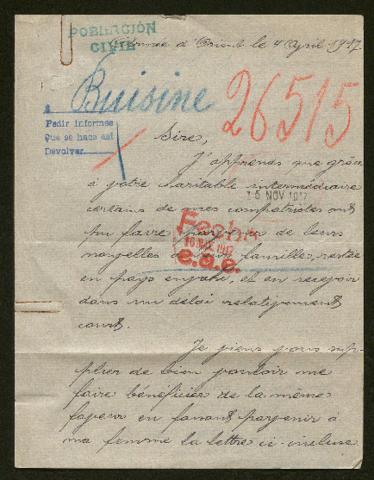 POBLACIÓN
CIVIL
Armée d'Orient le 4 April 1917
Buisine
26515
Pedir informes
Que se haga así
Devolver
Sire,
J'apprends que grâce
à votre charitable intermédiaire
15 NOV 1917
certains de mes compatriotes ont
pu faire parvenir de leurs
Fecha
nouvelles à leur famille, restée
en pays envahi, et en recevoir
e.a.e.
dans un délai relativement
court.
Je viens vous sup-
plier de bien vouloir me
faire bénéficier de la même
faveur en faisant parvenir à
ma femme la lettre ci-incluse